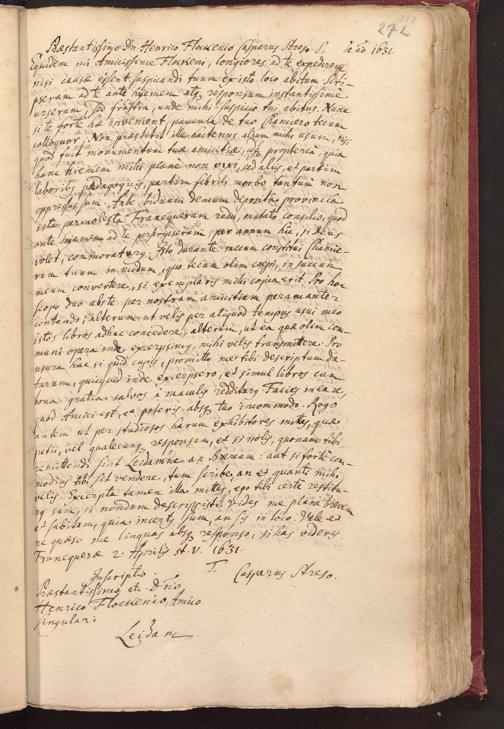 272
Præstantissimo Dn Henrico Flockenio Casparus Streso S. in aō 1631.
Equidem mi Amicissime Flockeni, longiores ad te expedirem
nisi causæ essent suspicandi tuum ex isto loco abitum. Scri-
pseram ad te ante hyemem atq responsum instantissime
urseram, sed frustra, unde mihi suspicio tui abitus. Nunc
si te forte hæ invenient, paucula de tuo Ramiero tecum
colloquor. Non præstitit ille hactenus alium mihi usum, nisi
quod fuit monumentum tuæ amicitiæ, idq propterea, quia
hanc hiemem mihi plane non vixi, sed aliis, et partim
laboribq pædagogicis, partim febrili morbo tantum non
oppressus sum. Ante biduum demum deposita provincia
ista permolesta Franequeram redii, mutato consilio, quod
ante hyemem ad te perscripseram, per annum hic, si Deus
volet, commoraturq. Isto durante mecum constitui Ramie-
rum tuum in nudum, quo tecum olim coepi, in succum
meum convertere, si exemplaris mihi copia erit. Pro hoc
scopo duo abs te per nostram amicitiam peramanter
contendo, alterum ut velis per aliquod tempus usui meo
istos libros adhuc concedere, alterum, ut ea quæ olim com-
muni opera inde excerpsimq, mihi velis transmittere. Pro
usura hac, si quid cupis, promitto me tibi descriptum da-
turum, quicquid inde excerpsero, et simul libros cum
bona gratia salvos à maculis redditurq. Facies in ea re,
quod Amici est, et poteris absq tuo incommodo. Rogo
autem ut per studiosos harum exhibitores mittas, quæ
petii, vel qualecunq responsum, et si nolis, quonam tibi
remittendi sint Leidamne an Bremam: aut si forte com-
modius tibi sit vendere, tum scribe, an et quanti mihi
velis. Excerpta tamen illa mittes, ego tibi certe restitu-
am sane, si nondum descripsisti. Vides me plane brevem
et subitum, quia incertq sum, an sis in loco. Vale et
ne quæso me linquas absq responso, si has videris.
Franequeræ 2. Aprilis st. v. 1631.
T. Casparus Streso.
Inscriptio.
Præstantissimo etc. Dno
Henrico Flockenio, Amico
singulari
Leidam